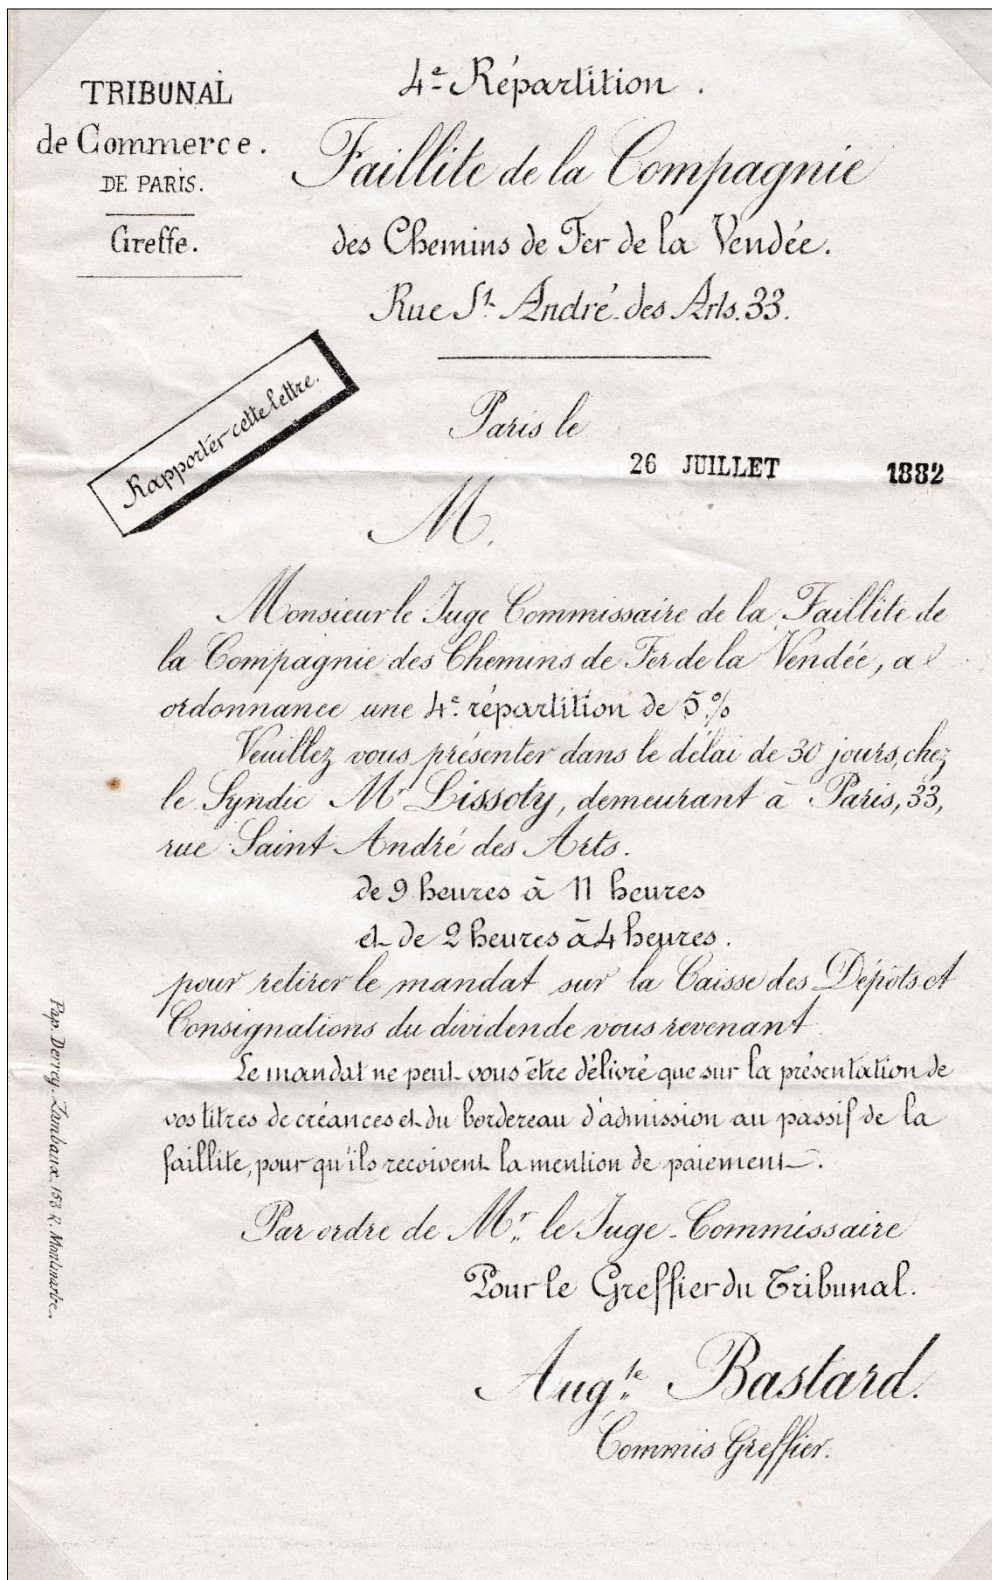 TRIBUNAL
de Commerce.
DE PARIS.
Greffe.
4e Répartition.
Faillite de la Compagnie
des Chemins de Fer de la Vendée.
Rue St. André des Arts. 33.
Rapporter cette lettre.
Paris le
26 JUILLET 1882
M.
Monsieur le Juge Commissaire de la Faillite de
la Compagnie des Chemins de Fer de la Vendée, a
ordonnance une 4e. répartition de 5%
Veuillez vous présenter dans le délai de 30 jours, chez
le Syndic Mr Lissoty, demeurant à Paris, 33,
rue Saint André des Arts.
de 9 heures à 11 heures
et de 2 heures à 4 heures.
pour retirer le mandat sur la Caisse des Dépôts et
Consignations du dividende vous revenant.
Le mandat ne peut vous être délivré que sur la présentation de
vos titres de créances et du bordereau d'admission au passif de la
faillite, pour qu'ils recoivent la mention de paiement.
Par ordre de Mr. le Juge-Commissaire
Pour le Greffier du Tribunal.
Augte. Bastard.
Commis Greffier.
Pap. Derrey. 153 R. Montmartre.